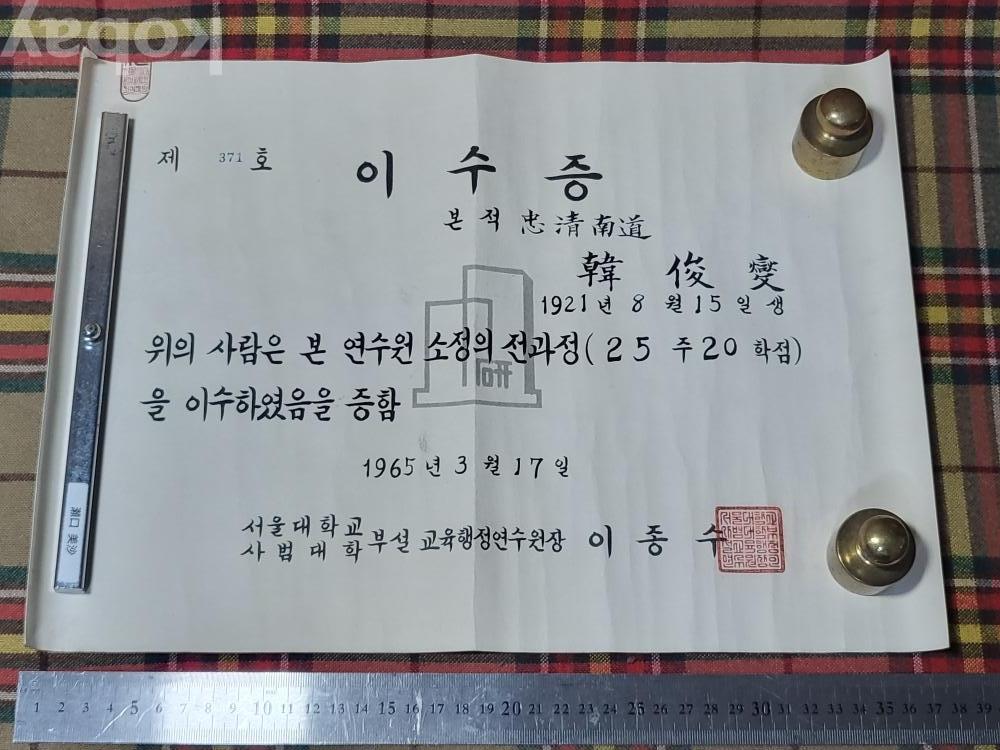 kobay
제 371 호
이 수 증
본 적 忠淸南道
韓 俊 燮
1921년 8 월 15 일 생
위의 사람은 본 연수원 소정의 전과정( 25 주 20 학점)
을 이수하였음을 증함
1965 년 3 월 17 일
서울대학교
사범대학 부설 교육행정연수원장 이 종 수
1 2 3 4 5 6 7 8 9 10 11 12 13 14 15 16 17 18 19 20 21 22 23 24 25 26 27 28 29 30 31 32 33 34 35 36 37 38 39